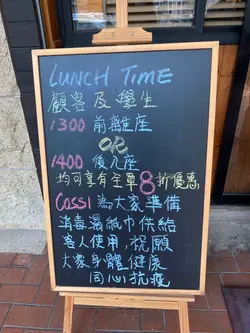 LUNCH TIME
顧客及學生
1300 前離座
OR
1400 後入座
均可享有全單8折優惠
Cossi 為大家準備
消毒濕紙巾供給
客人使用,祝願
大家身體健康
同心抗疫